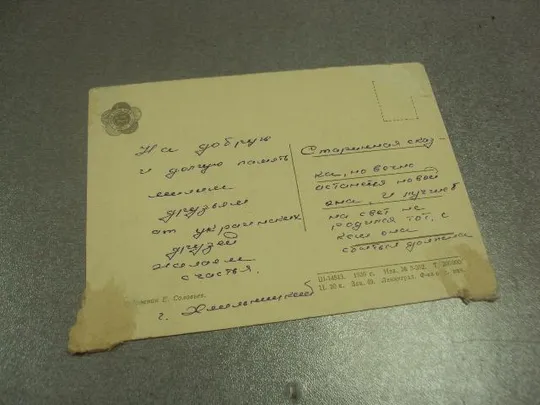 На добрую
и долгую память
милым
друзьям
от украинских
друзей
желаем
счастья.
г. Хмельницкий
Старинная сказ-
ка, но вечно
останется новой
она. И лучше б
на свет не
родился тот, с
кем она
сбыться должна
Е. Соловьев.
1956 г. Изд.
П. 30 к. Зак. Ленинград.